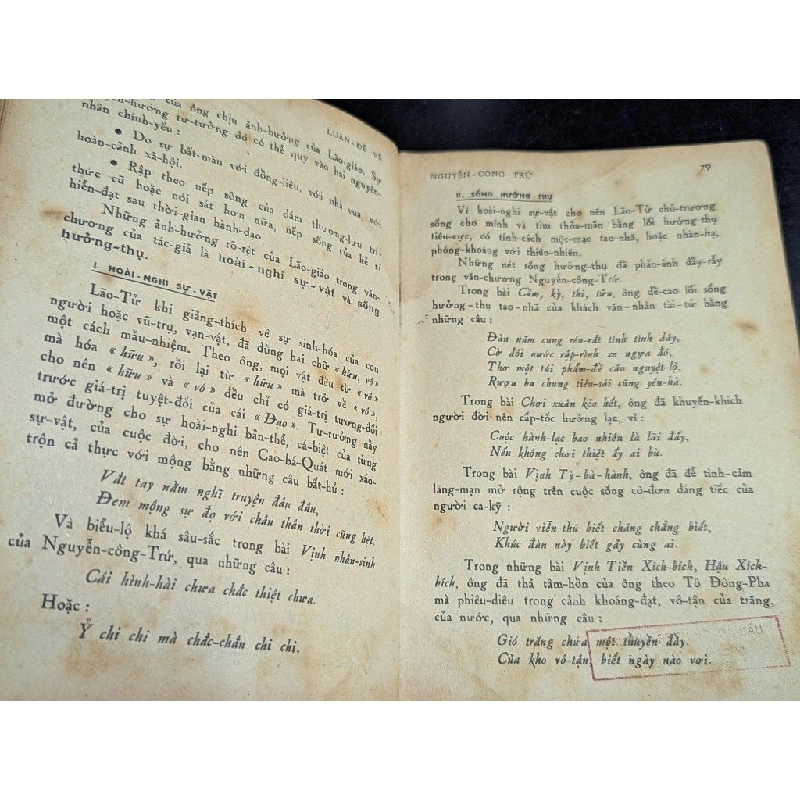 LUẬN-ĐỀ VỀ
của ông chịu ảnh-hưởng của Lão-giáo. Sự
ảnh-hưởng tư-tưởng đó có thể quy vào hai nguyên-
nhân chính-yếu :
• Do sự bất-mãn với đồng-liêu, với nhà vua, với
hoàn-cảnh xã-hội.
• Rập theo nếp sống của đám thượng-lưu trí-
thức cũ hoặc nói sát hơn nữa, nếp sống của kẻ sĩ
hiển-đạt sau thời-gian hành-đạo
Những ảnh-hưởng rõ-rệt của Lão-giáo trong văn-
chương của tác-giả là hoài-nghi sự-vật và sống
hưởng-thụ.
I. HOÀI-NGHI SỰ-VẬT
Lão-Tử khi giảng-thích về sự sinh-hóa của con
người hoặc vũ-trụ, vạn-vật, đã dùng hai chữ «hữu, vô»
một cách mầu-nhiệm. Theo ông, mọi vật đều từ «vô»
mà hóa «hữu», rồi lại từ «hữu» mà trở về «vô»,
cho nên «hữu» và «vô» đều chỉ có giá-trị tương-đối
trước giá-trị tuyệt-đối của cái «Đạo». Tư-tưởng này
mở đường cho sự hoài-nghi bản-thể, cá-biệt của từng
sự-vật, của cuộc đời, cho nên Cao-bá-Quát mới xáo-
trộn cả thực với mộng bằng những câu bất-hủ :
Vắt tay nằm nghĩ truyện đâu đâu,
Đem mộng sự đo với chân thân thời cũng hết.
Và biểu-lộ khá sâu-sắc trong bài Vịnh nhân-sinh
của Nguyễn-công-Trứ, qua những câu :
Cái hình-hài chưa chắc thiệt chưa.
Hoặc :
Ỷ chi chi mà chắc-chắn chi chi.
NGUYỄN-CÔNG TRỨ 79
II. SỐNG HƯỞNG THỤ
Vì hoài-nghi sự-vật cho nên Lão-Tử chủ-trương
sống cho mình và tìm thỏa-mãn bằng lối hưởng-thụ
tiêu-cực, có tính-cách mộc-mạc tao-nhã, hoặc nhàn-hạ,
phóng-khoáng với thiên-nhiên.
Những nét sống hưởng-thụ đã phản-ánh đầy-rẫy
trong văn-chương Nguyễn-công-Trứ.
Trong bài Cầm, kỳ, thi, tửu, ông đề-cao lối sống
hưởng-thụ tao-nhã của khách văn-nhân tài-tử bằng
những câu :
Đàn năm cung réo-rắt tính tình đây,
Cờ đôi nước rập-rình xe ngựa đó,
Thơ một túi phẩm-đề câu nguyệt-lộ,
Rượu ba chung tiêu-sái cùng yên-hà.
Trong bài Chơi xuân kẻo hết, ông đã khuyến-khích
người đời nên cấp-tốc hưởng lạc, vì :
Cuộc hành-lạc bao nhiêu là lãi đấy,
Nếu không chơi thiệt ấy ai bù.
Trong bài Vịnh Tỳ-bà-hành, ông đã để tình-cảm
lãng-mạn mở rộng trên cuộc sống cô-đơn đáng tiếc của
người ca-kỹ :
Người viễn thú biết chăng chẳng biết,
Khúc đàn này biết gảy cùng ai.
Trong những bài Vịnh Tiền Xích-bích, Hậu Xích-
bích, ông đã thả tâm-hồn của ông theo Tô Đông-Pha
mà phiêu-diêu trong cảnh khoáng-đạt, vô-tận của trăng,
của nước, qua những câu :
Gió trăng chứa một thuyền đầy.
Của kho vô-tận, biết ngày nào vơi.